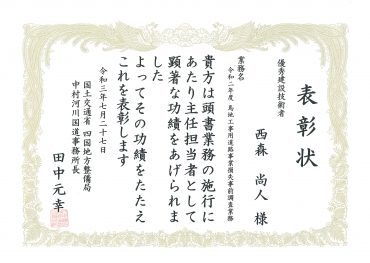 表彰状
優秀建設技術者
西森 尚人 様
業務名
令和二年度 馬地工事用道路事業損失事前調査業務
貴方は頭書業務の施行に
あたり主任担当者として
顕著な功績をあげられま
した
よってその功績をたたえ
これを表彰します
令和三年七月二十七日
国土交通省 四国地方整備局
中村河川国道事務所長
田中元幸